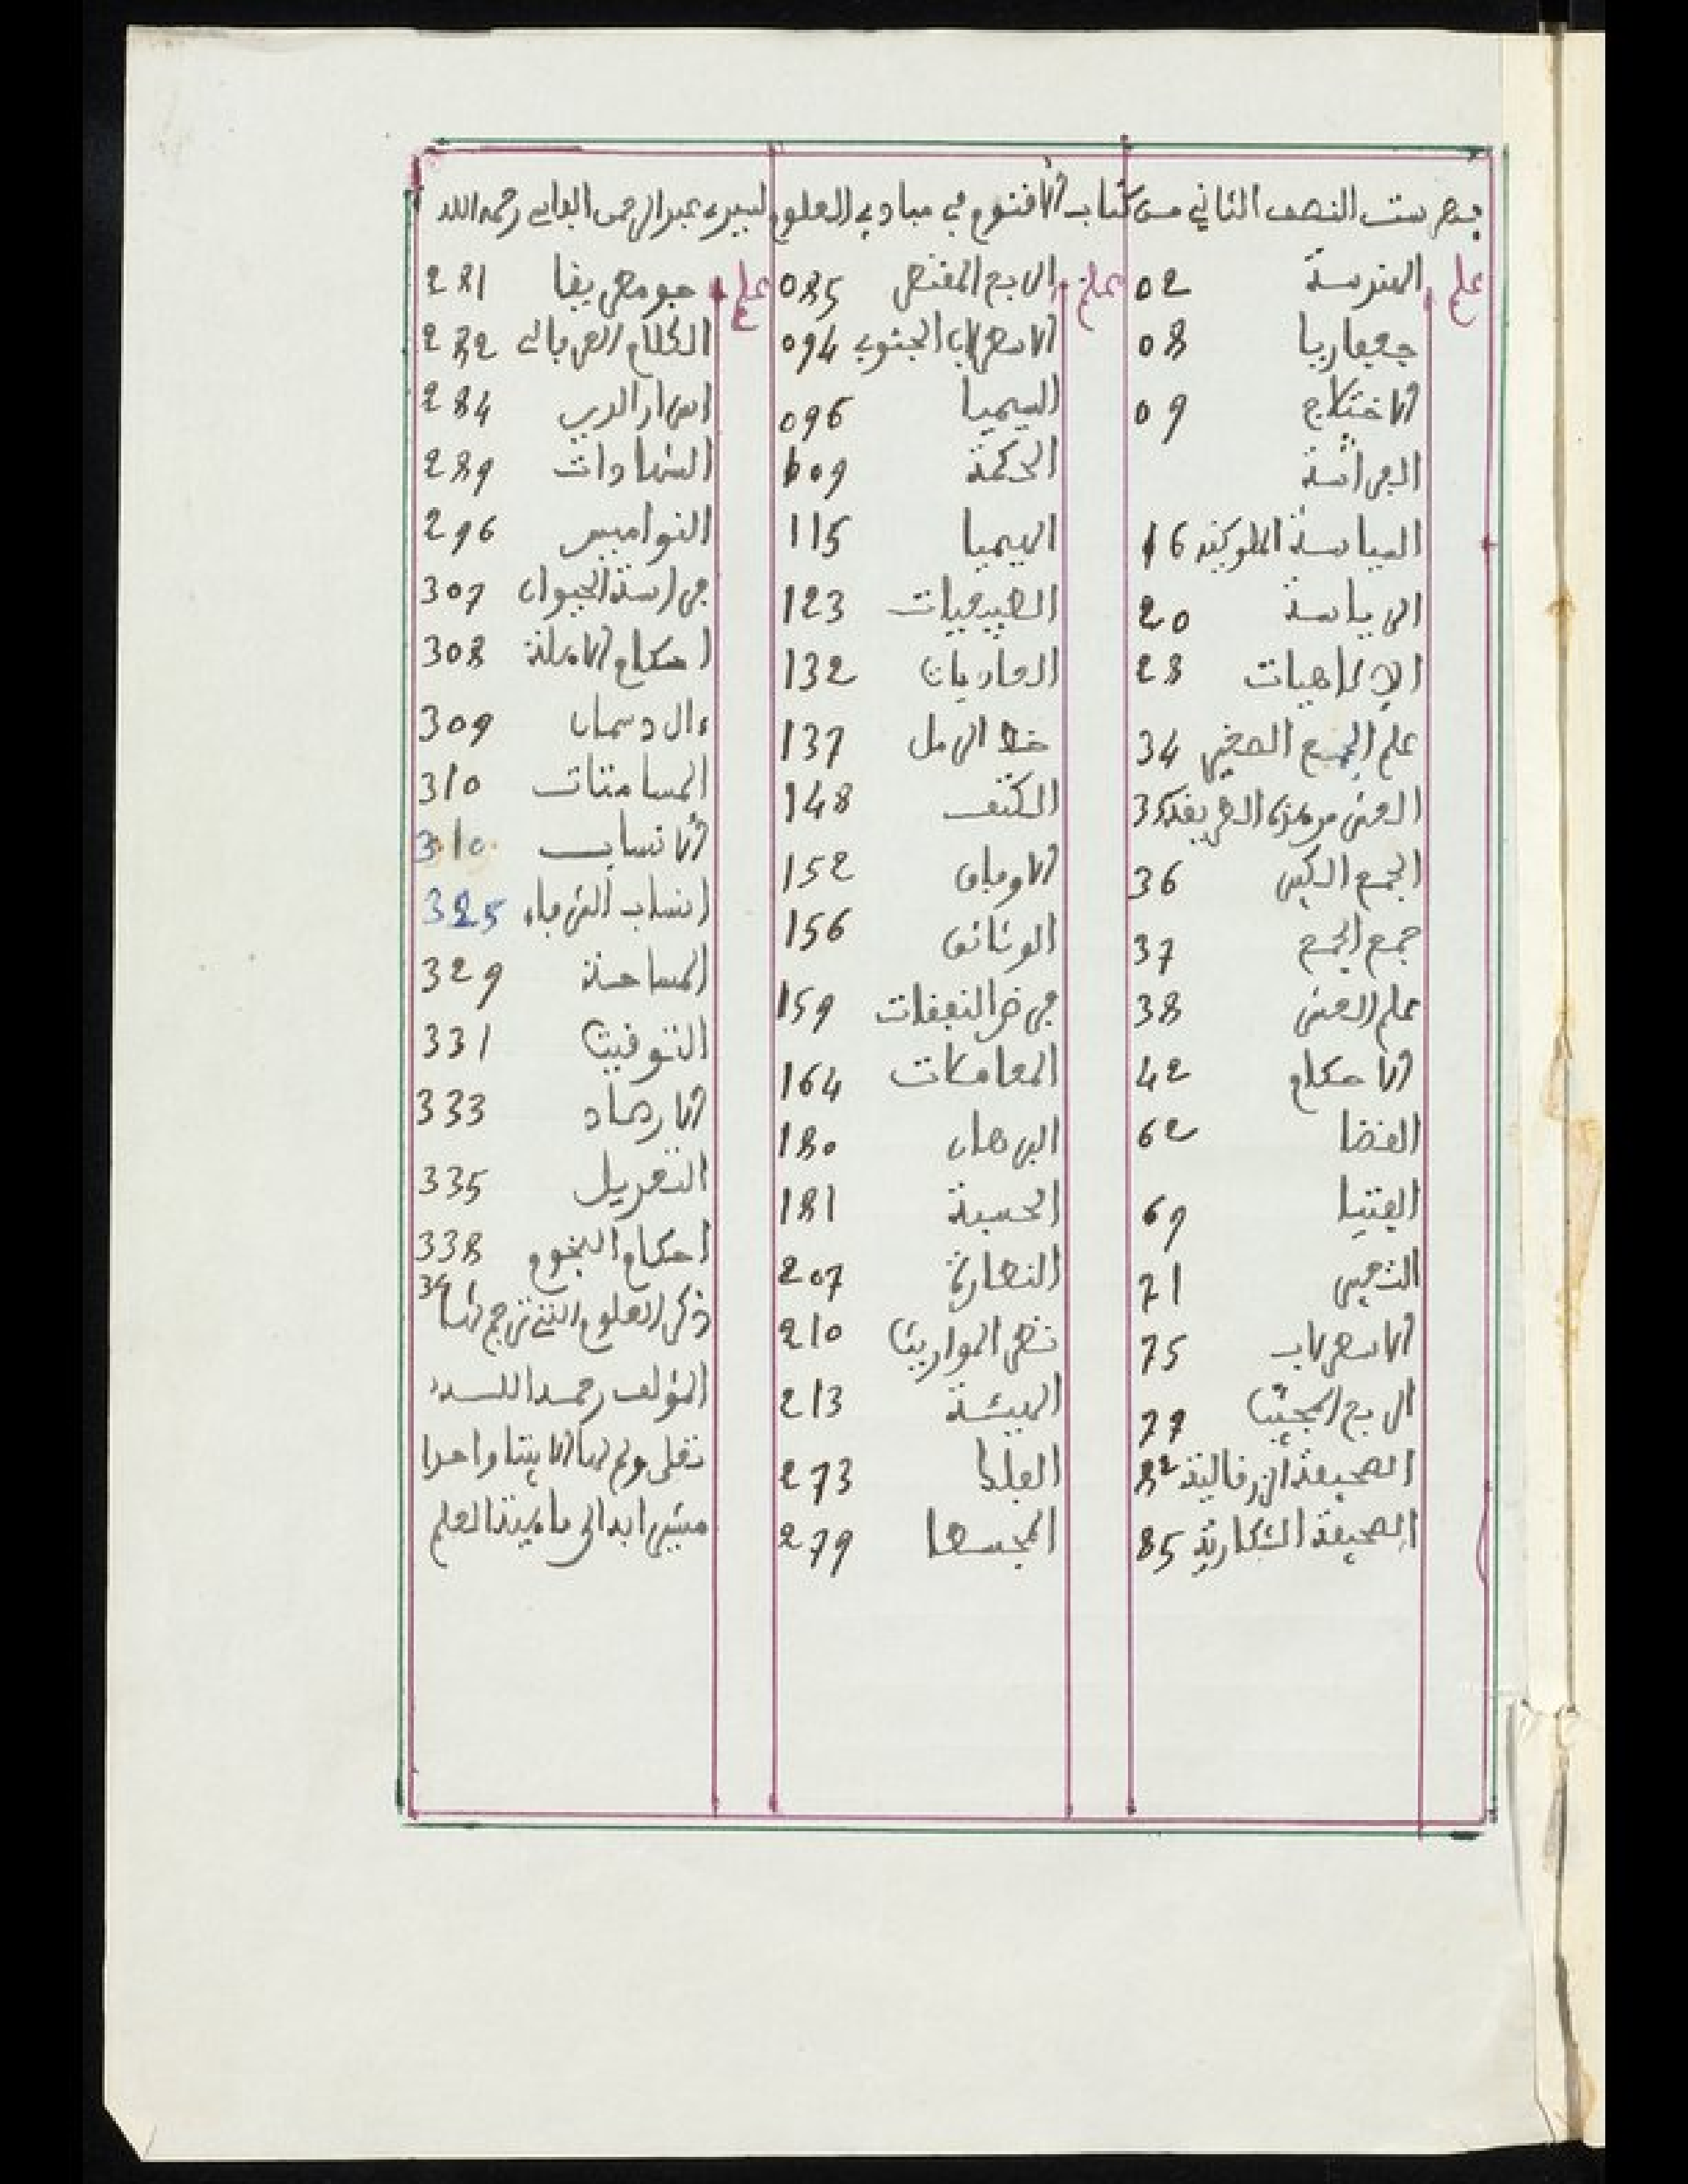 فهرست النصف الثاني من كتاب الأقنوم في مبادي العلوم لسيدي عبد الرحمن الفاسي رحمه الله
علم
الهندسة 02
جمعاريا 08
الاختلاج 09
الفراسة
السياسة الملوكية 16
الرياسة 20
الإلاهيات 28
علم الجمع الصغير 34
الجمع الكبير 36
جمع الجمع 37
38
الاحكام 42
القضا 62
الفتيا 69
71
الاسطرلاب 75
الربع المجيب 77
الصحيفة الزرقالية 82
الصحيفة الشكازية 85
علم
الربع المقنطر 085
الاسطرلاب الجنوبي 094
السيميا 096
الحكمة 109
الهيميا 115
الطبيعيات 123
132
خط الرمل 137
الكتف 148
الاوفاق 152
الوثائق 156
فرض النفقات 159
المعاملات 164
البرهان 180
الحسبة 181
207
نظر المواريث 210
الهيئة 213
الفلك 273
المجسطا 279
علم
جومطريقا 281
282
اسرار الدين 284
الشهادات 289
النواميس 296
فراسة الحيوان 307
احكام الاهلة 308
309
المسامتات 310
الانساب 310
انساب الشرفاء 325
المساحة 329
التوقيت 331
الارصاد 333
التعديل 335
احكام النجوم 338
ذكر العلوم التي ترجم لها
المؤلف رحمه الله
تعلى ولم لها الا بيتا واحدا
العلم